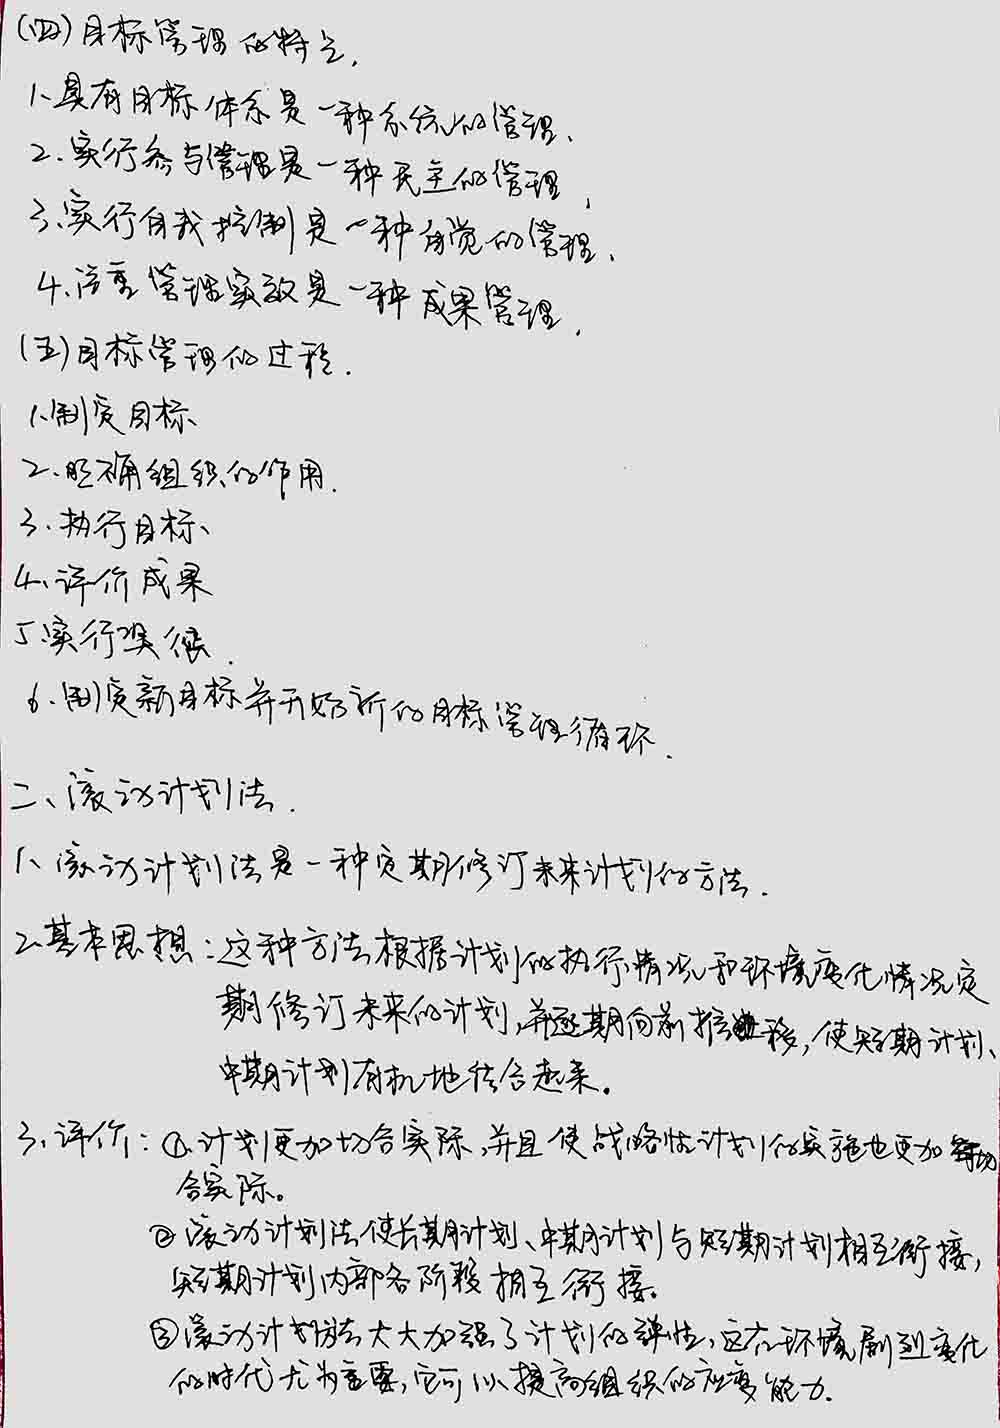 (四)目标管理的特点.
1、具有目标体系是一种系统的管理、
2.实行参与管理是一种民主的管理,
3、实行自我控制是一种自觉的管理、
4、注重管理实效是一种成果管理.
(五)目标管理的过程.
1、制定目标、
2.明确组织的作用.
3.执行目标、
4、评价成果
5.实行奖惩.
6.制定新目标并开始新的目标管理循环.
二、滚动计划法.
1、滚动计划法是一种定期修订未来计划的方法.
2.基本思想:这种方法根据计划的执行情况和环境变化情况定
期修订未来的计划,并逐期向前推移,使短期计划、
中期计划有机地结合起来。
3、评价:①.计划更加切合实际,并且使战略性计划的实施也更加切
合实际。
②滚动计划法使长期计划、中期计划与短期计划相互衔接,
短期计划内部各阶段相互衔接。
③滚动计划法大大加强了计划的弹性,这在环境剧烈变化
的时代尤为重要,它可以提高组织的应变能力.